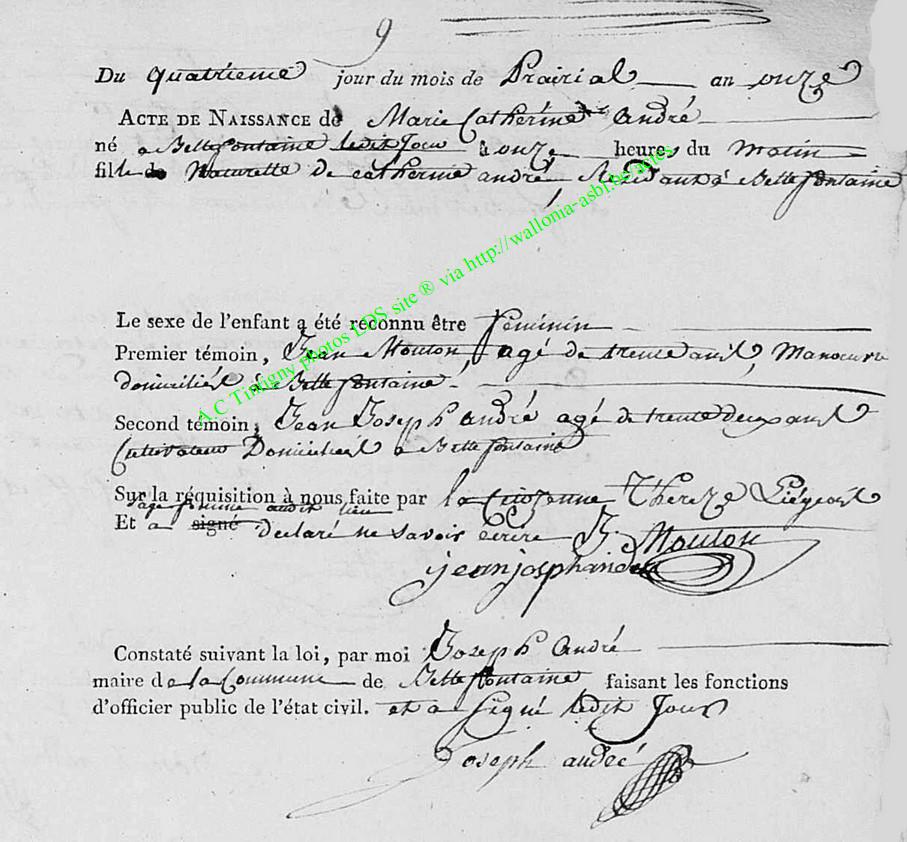 9
Du quatrieme jour du mois de Prairial an onze
ACTE DE NAISSANCE de Marie Catherine André
né a Bellefontaine ledit Jour à onze heures du Matin
fille de Naturelle de catherine andré, Residante à Bellefontaine
Le sexe de l'enfant a été reconnu être feminin
Premier témoin, Jean Mouton, agé de trente ans, Manoeuvre
domicilié à Bellefontaine
Second témoin, Jean Joseph andré agé de trente deux ans
Cultivateur Domicilié a Bellefontaine
Sur la réquisition à nous faite par la Citoyenne Thereze Liégeois
sage femme audit lieu
Et a signé declaré ne savoir écrire J Mouton
jean josph andré
Constaté suivant la loi, par moi Joseph André
maire de la Commune de Bellefontaine faisant les fonctions
d'officier public de l'état civil. et a signé ledit Jour
Joseph andré
A.C Tintigny photos LDS site ® via http://wallonia-asbl.be/actes